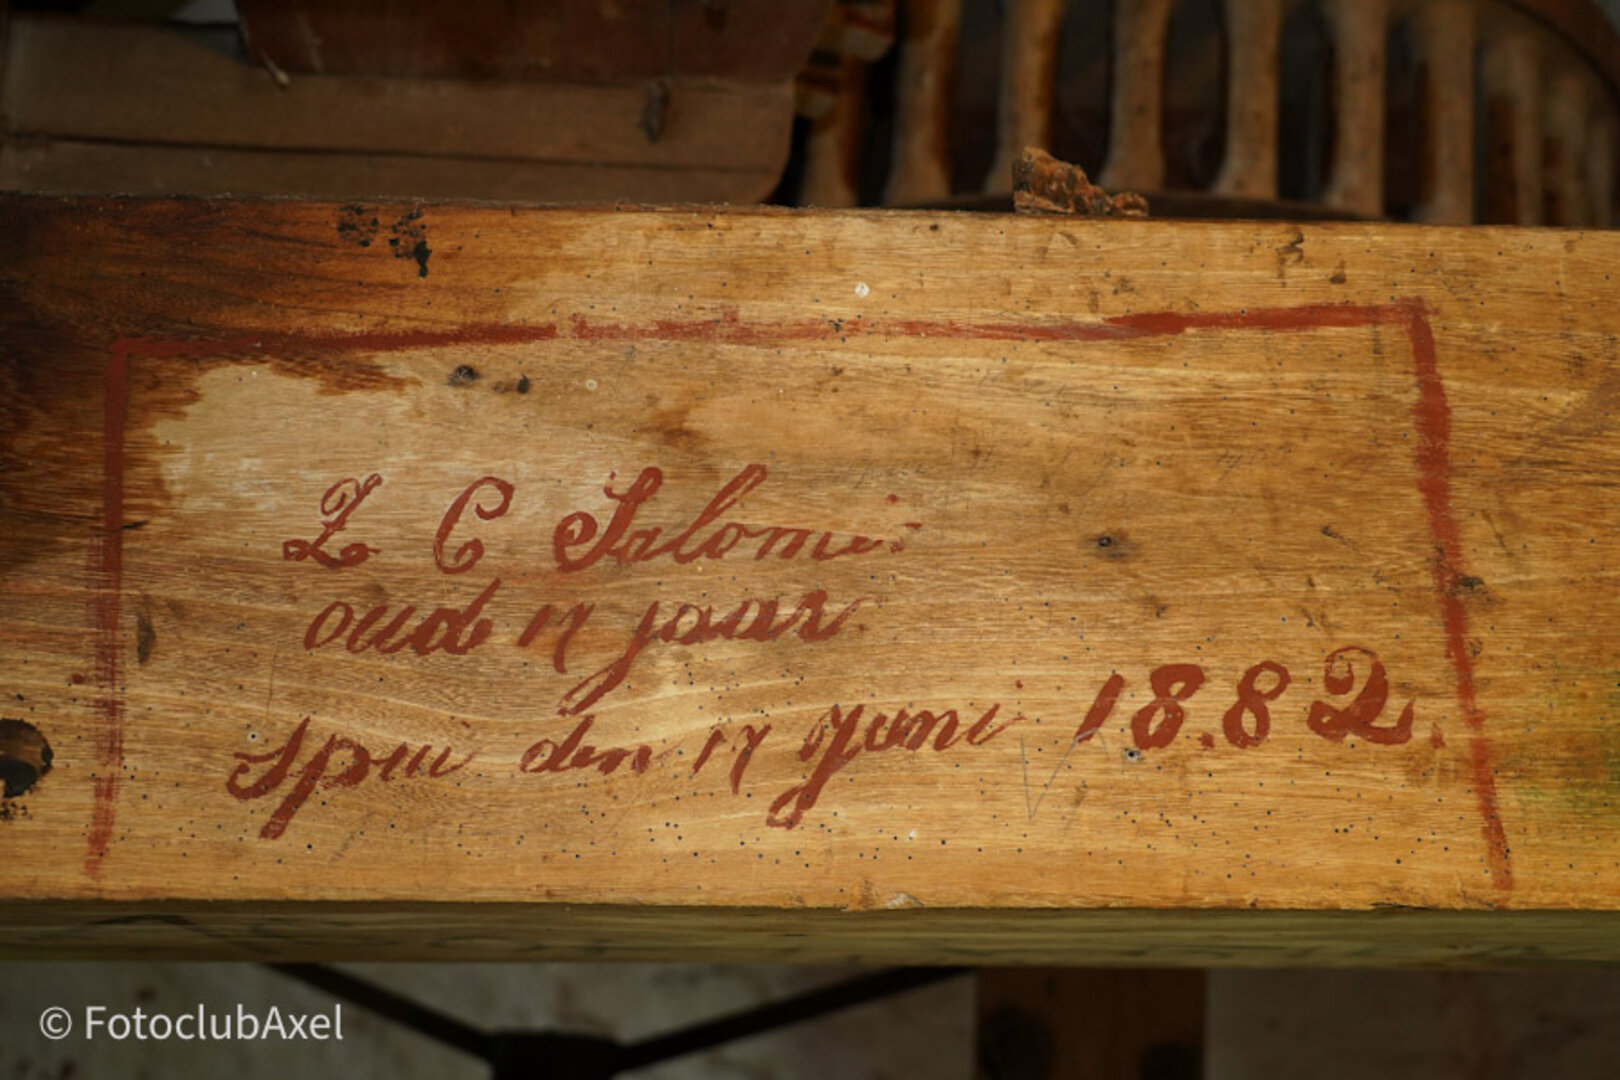 Z C Salomé
oud 17 jaar
Spui den 17 Juni 1882.
© FotoclubAxel